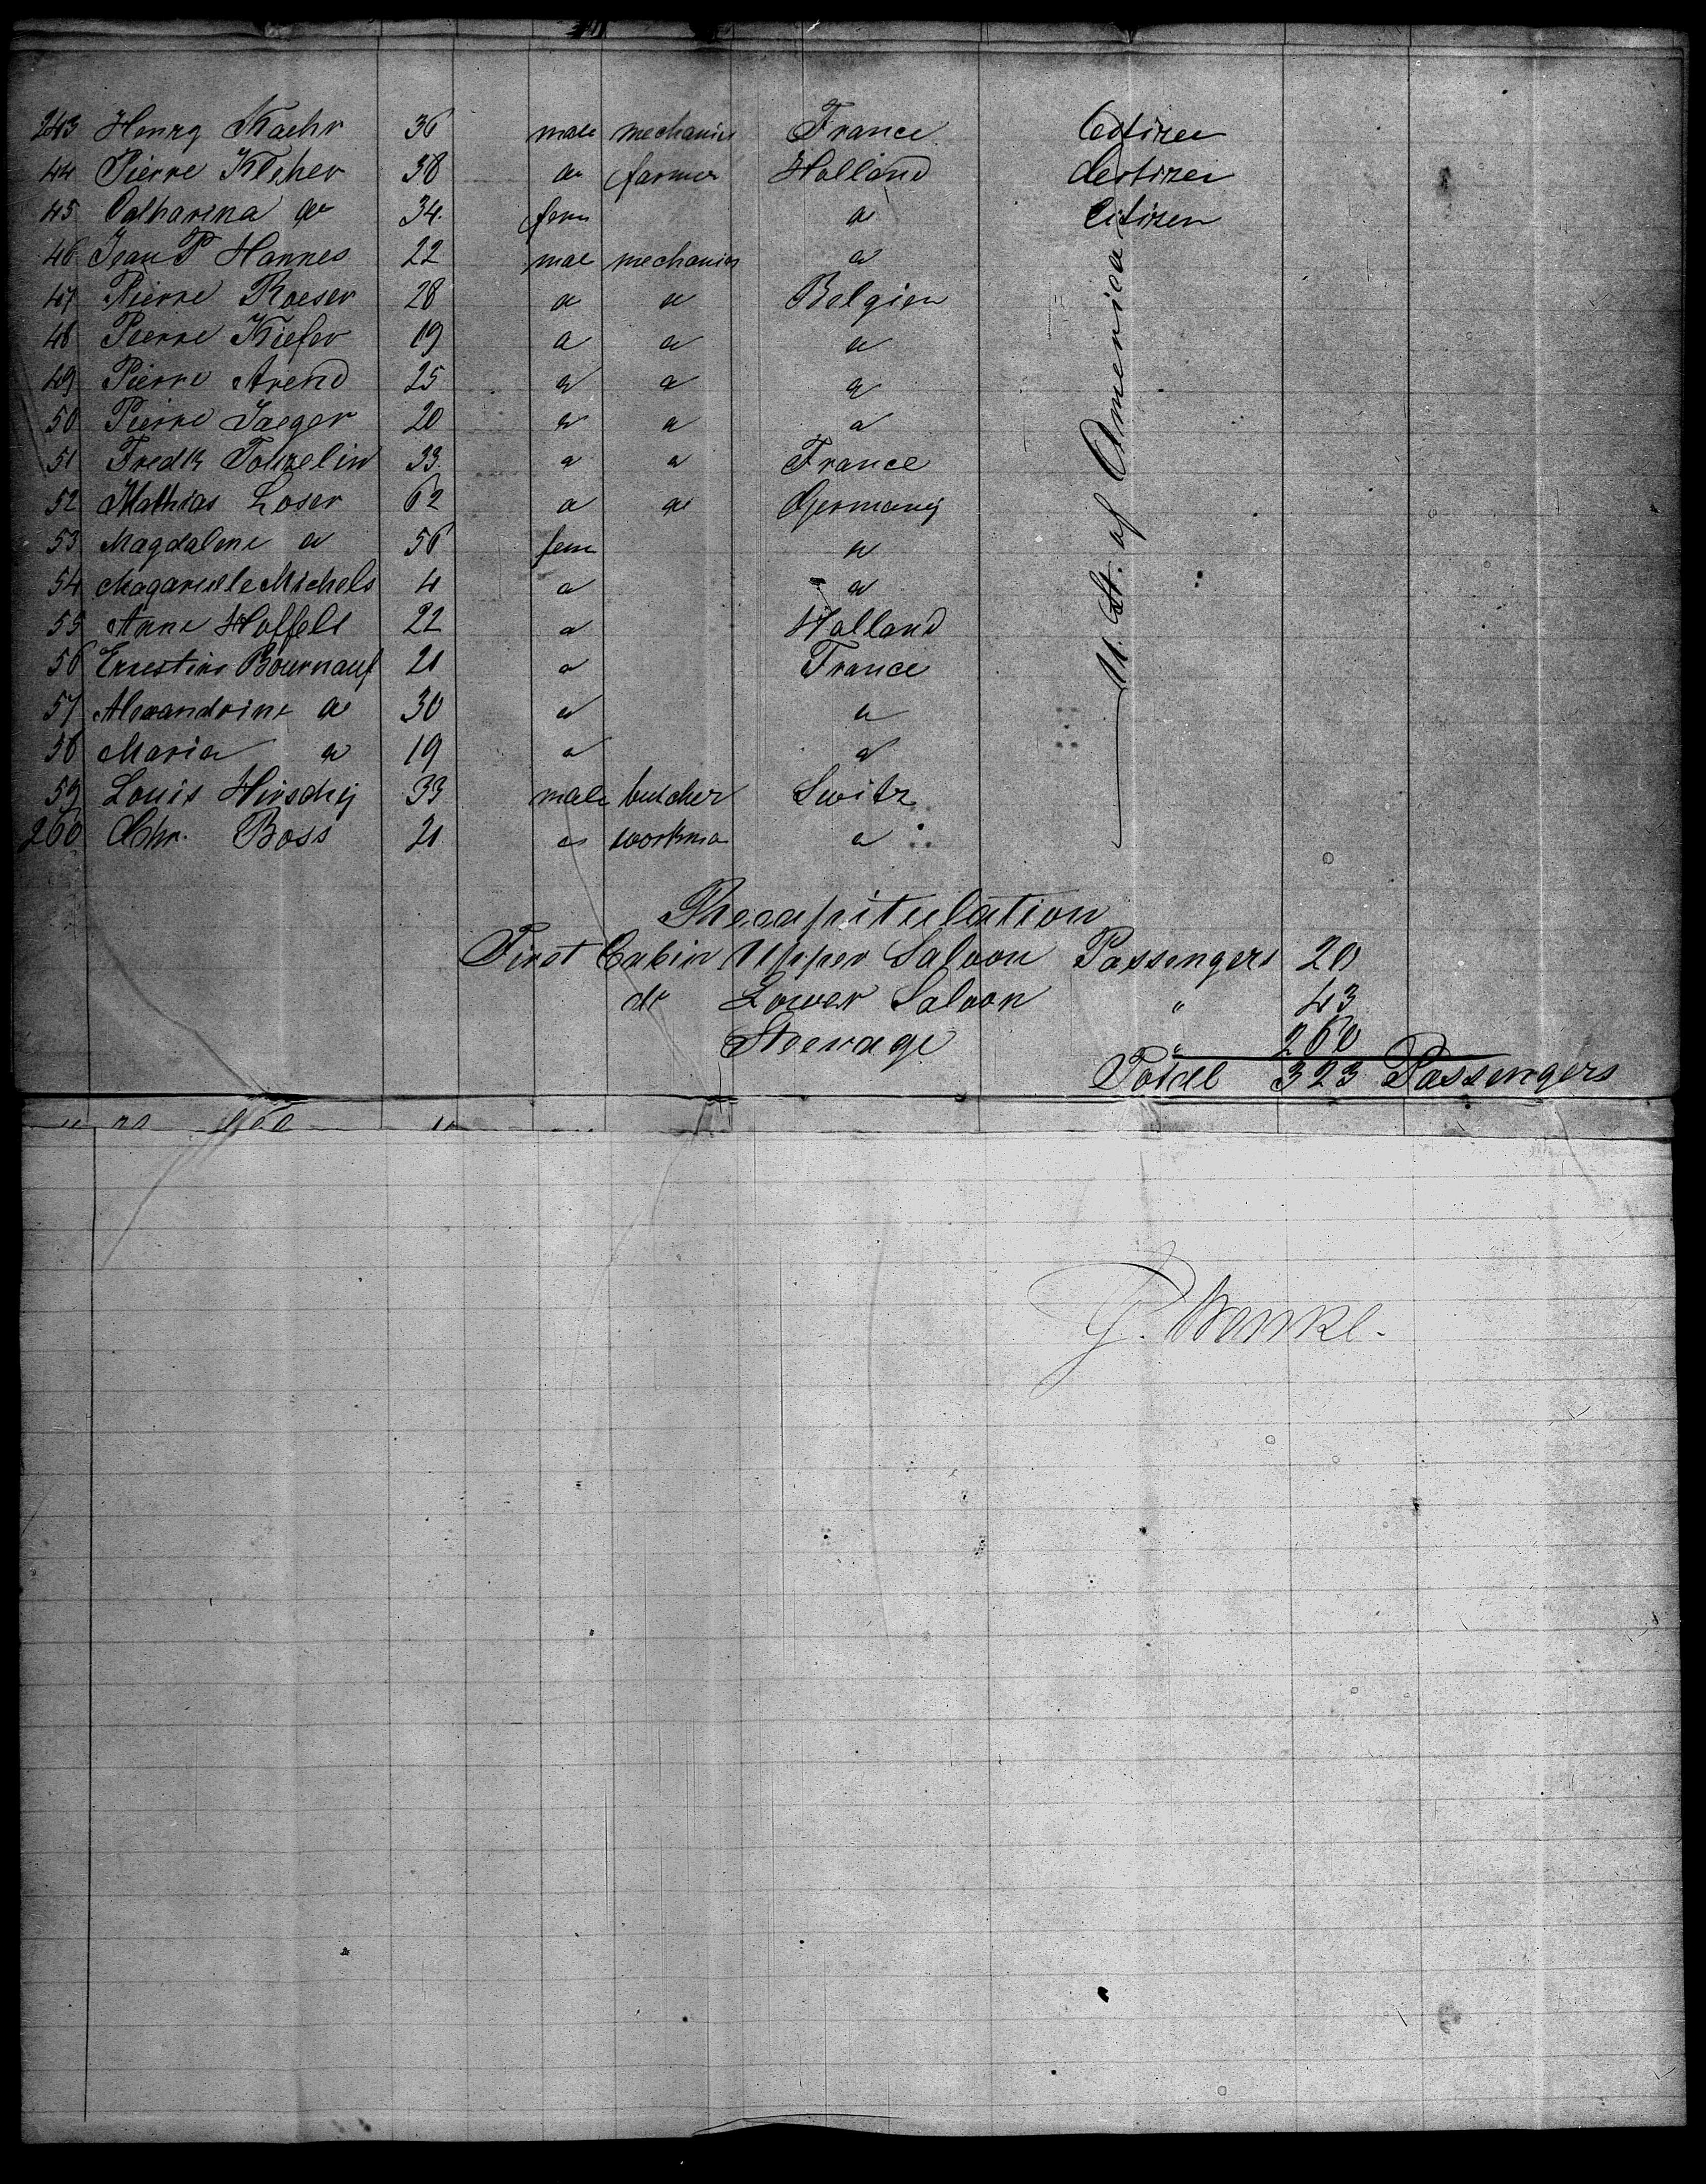 243 Henry Kaehr 36 male mechanic France Citizen
44 Pierre Kleher 38 a farmer Holland Citizen
45 Catharina a 34 fem a Citizen
46 Jean P Hannes 22 mal mechanics a
47 Pierre Roeser 28 a a Belgien
48 Pierre Kiefer 19 a a a
49 Pierre Arend 25 a a a
50 Pierre Jaeger 20 a a a
51 Fredk Touzelin 33 a a France
52 Mathias Loser 62 a a Germany
53 Magdalene a 56 fem a
54 Michels 4 a a
55 Anne Hoffelt 22 a Holland
56 Ernestine Bournauf 21 a France
57 Alexandrine a 30 a a
58 Maria a 19 a a
59 Louis Hirschy 33 male butcher Switz
260 Chr. Boss 21 a workma a
U. St. of America
Recapitulation
First Cabin Upper Saloon Passengers 20
do Lower Saloon " 43
Steerage " 260
Total 323 Passengers